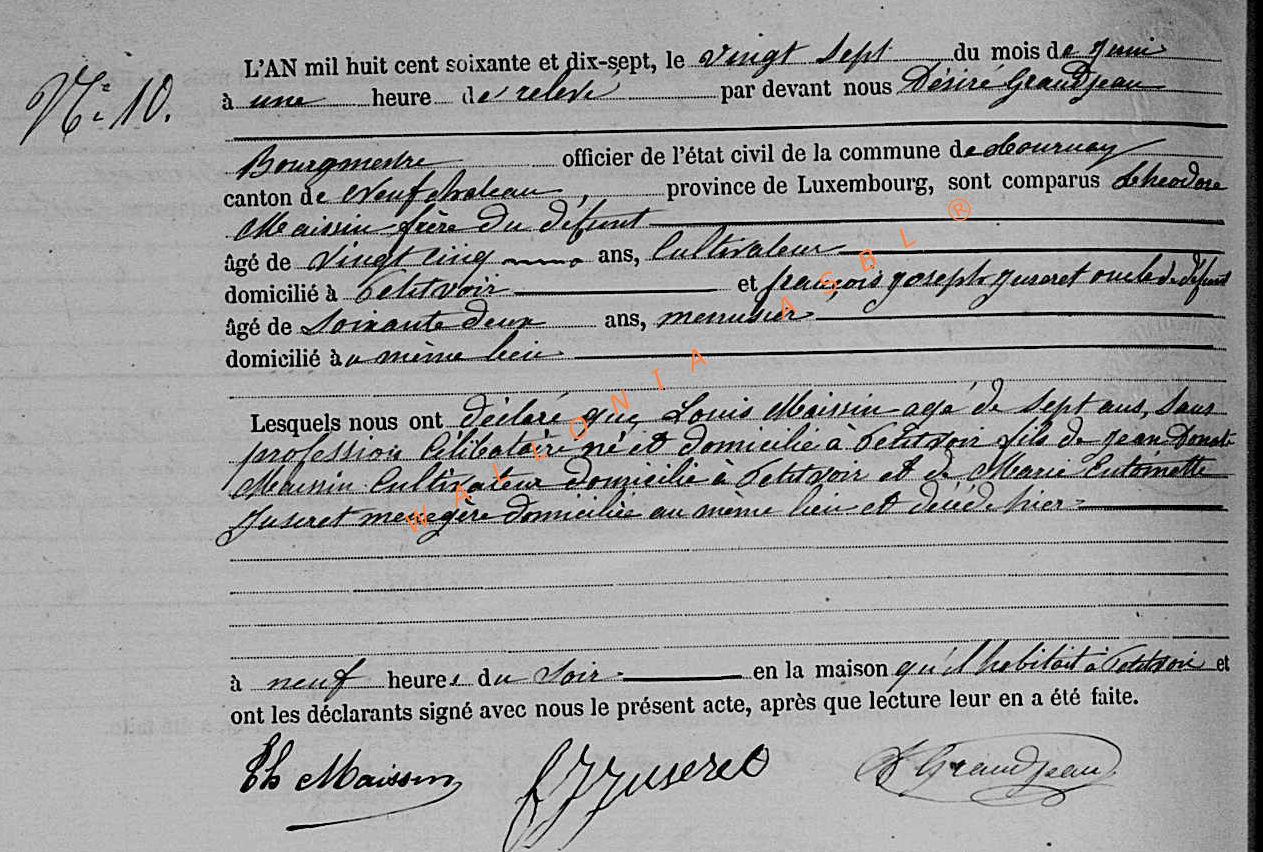 N° 10.
L'AN mil huit cent soixante et dix-sept, le vingt sept du mois de juin
à une heure de relevé par devant nous Désiré Grandjean
Bourgmestre officier de l'état civil de la commune de Tournay
canton de Neufchateau, province de Luxembourg, sont comparus Théodore
Maissin frère du défunt
âgé de vingt cinq ans, Cultivateur
domicilié à Petitvoir et françois joseph Juseret oncle du défunt
âgé de Soixante deux ans, menusier
domicilié à u même lieu
Lesquels nous ont déclaré que Louis Maissin agé de sept ans, sans
profession Célibataire né et domicilié à Petitvoir fils de jean Donat
Maissin Cultivateur domicilié à Petitvoir et de Marie Antoinette
Juseret menagère domiciliée au même lieu est décédé hier
à neuf heures du Soir en la maison qu'il habitait à Petitvoir et
ont les déclarants signé avec nous le présent acte, après que lecture leur en a été faite.
Th Maissin F J Juseret D Grandjean
WALLONIA ASBL ®